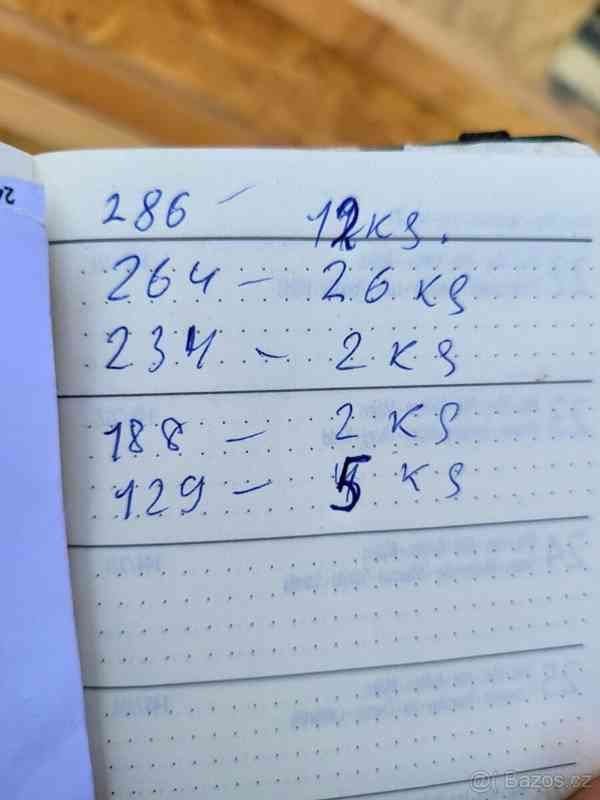 286 – 12 kg.
264 – 26 kg
234 – 2 kg
188 – 2 kg
129 – 5 kg
Bazos.cz